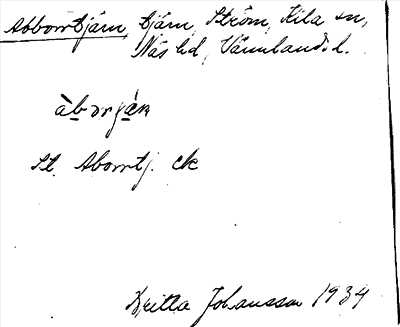 Abborrtjärn, tjärn, Ström, Kila sn,
Näs hd, Värmlands l.
àbərjä̀n
St. Aborrtj. ek
Britta Johansson 1934